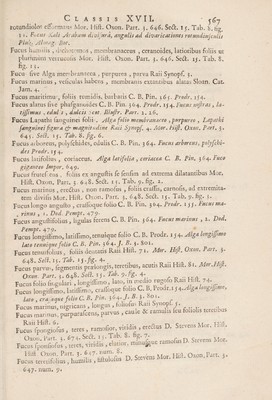 CLASSIS XVII. 567
rotundiolor efformans Mor. Hist. Oxon. Part. 3. 646. Sect. 15. Tab. 8. fig.
11. Fucus Kali Arabum
Pluk. Almag. Bot.
Fucus humilis, membranaceus, ceranoides, latioribus foliis ut
plurimum verrucosis Mor. Hist. Oxon. Part. 3. 646. Sect. 15. Tab. 8.
fig. 12.
Fucus sive Alga membranacea, purpurea, parva Raii Synops. 3.
Fucus marinus, vesiculas habens, membranis extantibus alatas Sloan. Cat.
Jam. 4.
Fucus maritimus, foliis tenuidis, barbatis C. B. Pin. 365. Prodr. 154.
Fucus alatus sive phasganoides C. B. Pin. 364. Prodr. 154.
edulis, dulcis Part. 1. 26.
Fucus Lapathi sanguinei folii. Alga folio membranaceo, purpureo, Lapathi
sanguinei figura & magnitudine Raii Synops. 4. Mor. Hist. Oxon. Part. 3.
645. Sect. 15. Tab. 8. fig. 6.
Fucus arboreus, polyschides, edulis C. B. Pin. 364. Fucus arboreus, polyschides
Prodr. 154.
Fucus latifolius, coriaceus. Alga latifolia, coriacea C. B. Pin. 364. Fuco
giganteo Imper. 649.
Fucus fruticosus foliis ex angustis se sensim ad extrema dilatantibus Mor.
Hist. Oxon. Part. 3. 648. Sect. 15. Tab. 9. fig. 2.
Fucus marinus, erectus, non ramosus, foliis crassis, carnosis, ad extremitatem
divisis Mor. Hist. Oxon. Part. 3. 648. Sect. 15. Tab. 9. fig. 3.
Fucus longo angusto, crassoque folio C. B. Pin. 364. Prodr. 155. Fucus marinus,
1. Dod. Pempt. 479.
Fucus angustifolius, ligulas ferens C. B. Pin. 364. Fucus marinus, 2. Dod.
Pempt. 479.
Fucus longissimo, latissimo, tenuique folio C. B. Prodr. 154. Alga longissimo
lato tenuique folio C. B. Pin. 364. J. B. 3. 801.
Fucus tenuifolius, foliis dentatis Raii Hist. 71. Mor. Hist. Oxon. Part. 3.
648. Sect. 15. Tab. 15. fig. 4.
Fucus parvus, segmentis prælongis, teretibus, acutis Raii Hist. 81. Mor. Hist.
Oxon. Part. 3. 648. Sect. 15. Tab. 9. fig. 4.
Fucus folio singulari, longissimo, lato, in medio rugoso Raii Hist. 74.
Fucus longissimo, latissimo, crassoque folio C. B. Prodr. 154. Alga longissimo,
lato, crassoque folio C. B. Pin. 364. J. B. 3. 801.
Fucus marinus, nigricans, longus, foliosus Raii Synops. 5.
Fucus marinus, purpurascens, parvus, caule & ramulis seu foliolis teretibus
Raii Hist. 6.
Fucus spongiosus, teres, ramosior, viridis, erectus D. Stevens Mor. Hist.
Oxon. Part. 3. 647. Sect. 15. Tab. 8. fig. 7.
Fucus spongiosus, teres, viridis, elatior, minusque ramosus D. Stevens Mor.
Hist. Oxon. Part. 3. 647. num. 8.
Fucus teretifolius, humilis, fistulosus D. Stevens Mor. Hist. Oxon. Part. 3.
647. num. 9.